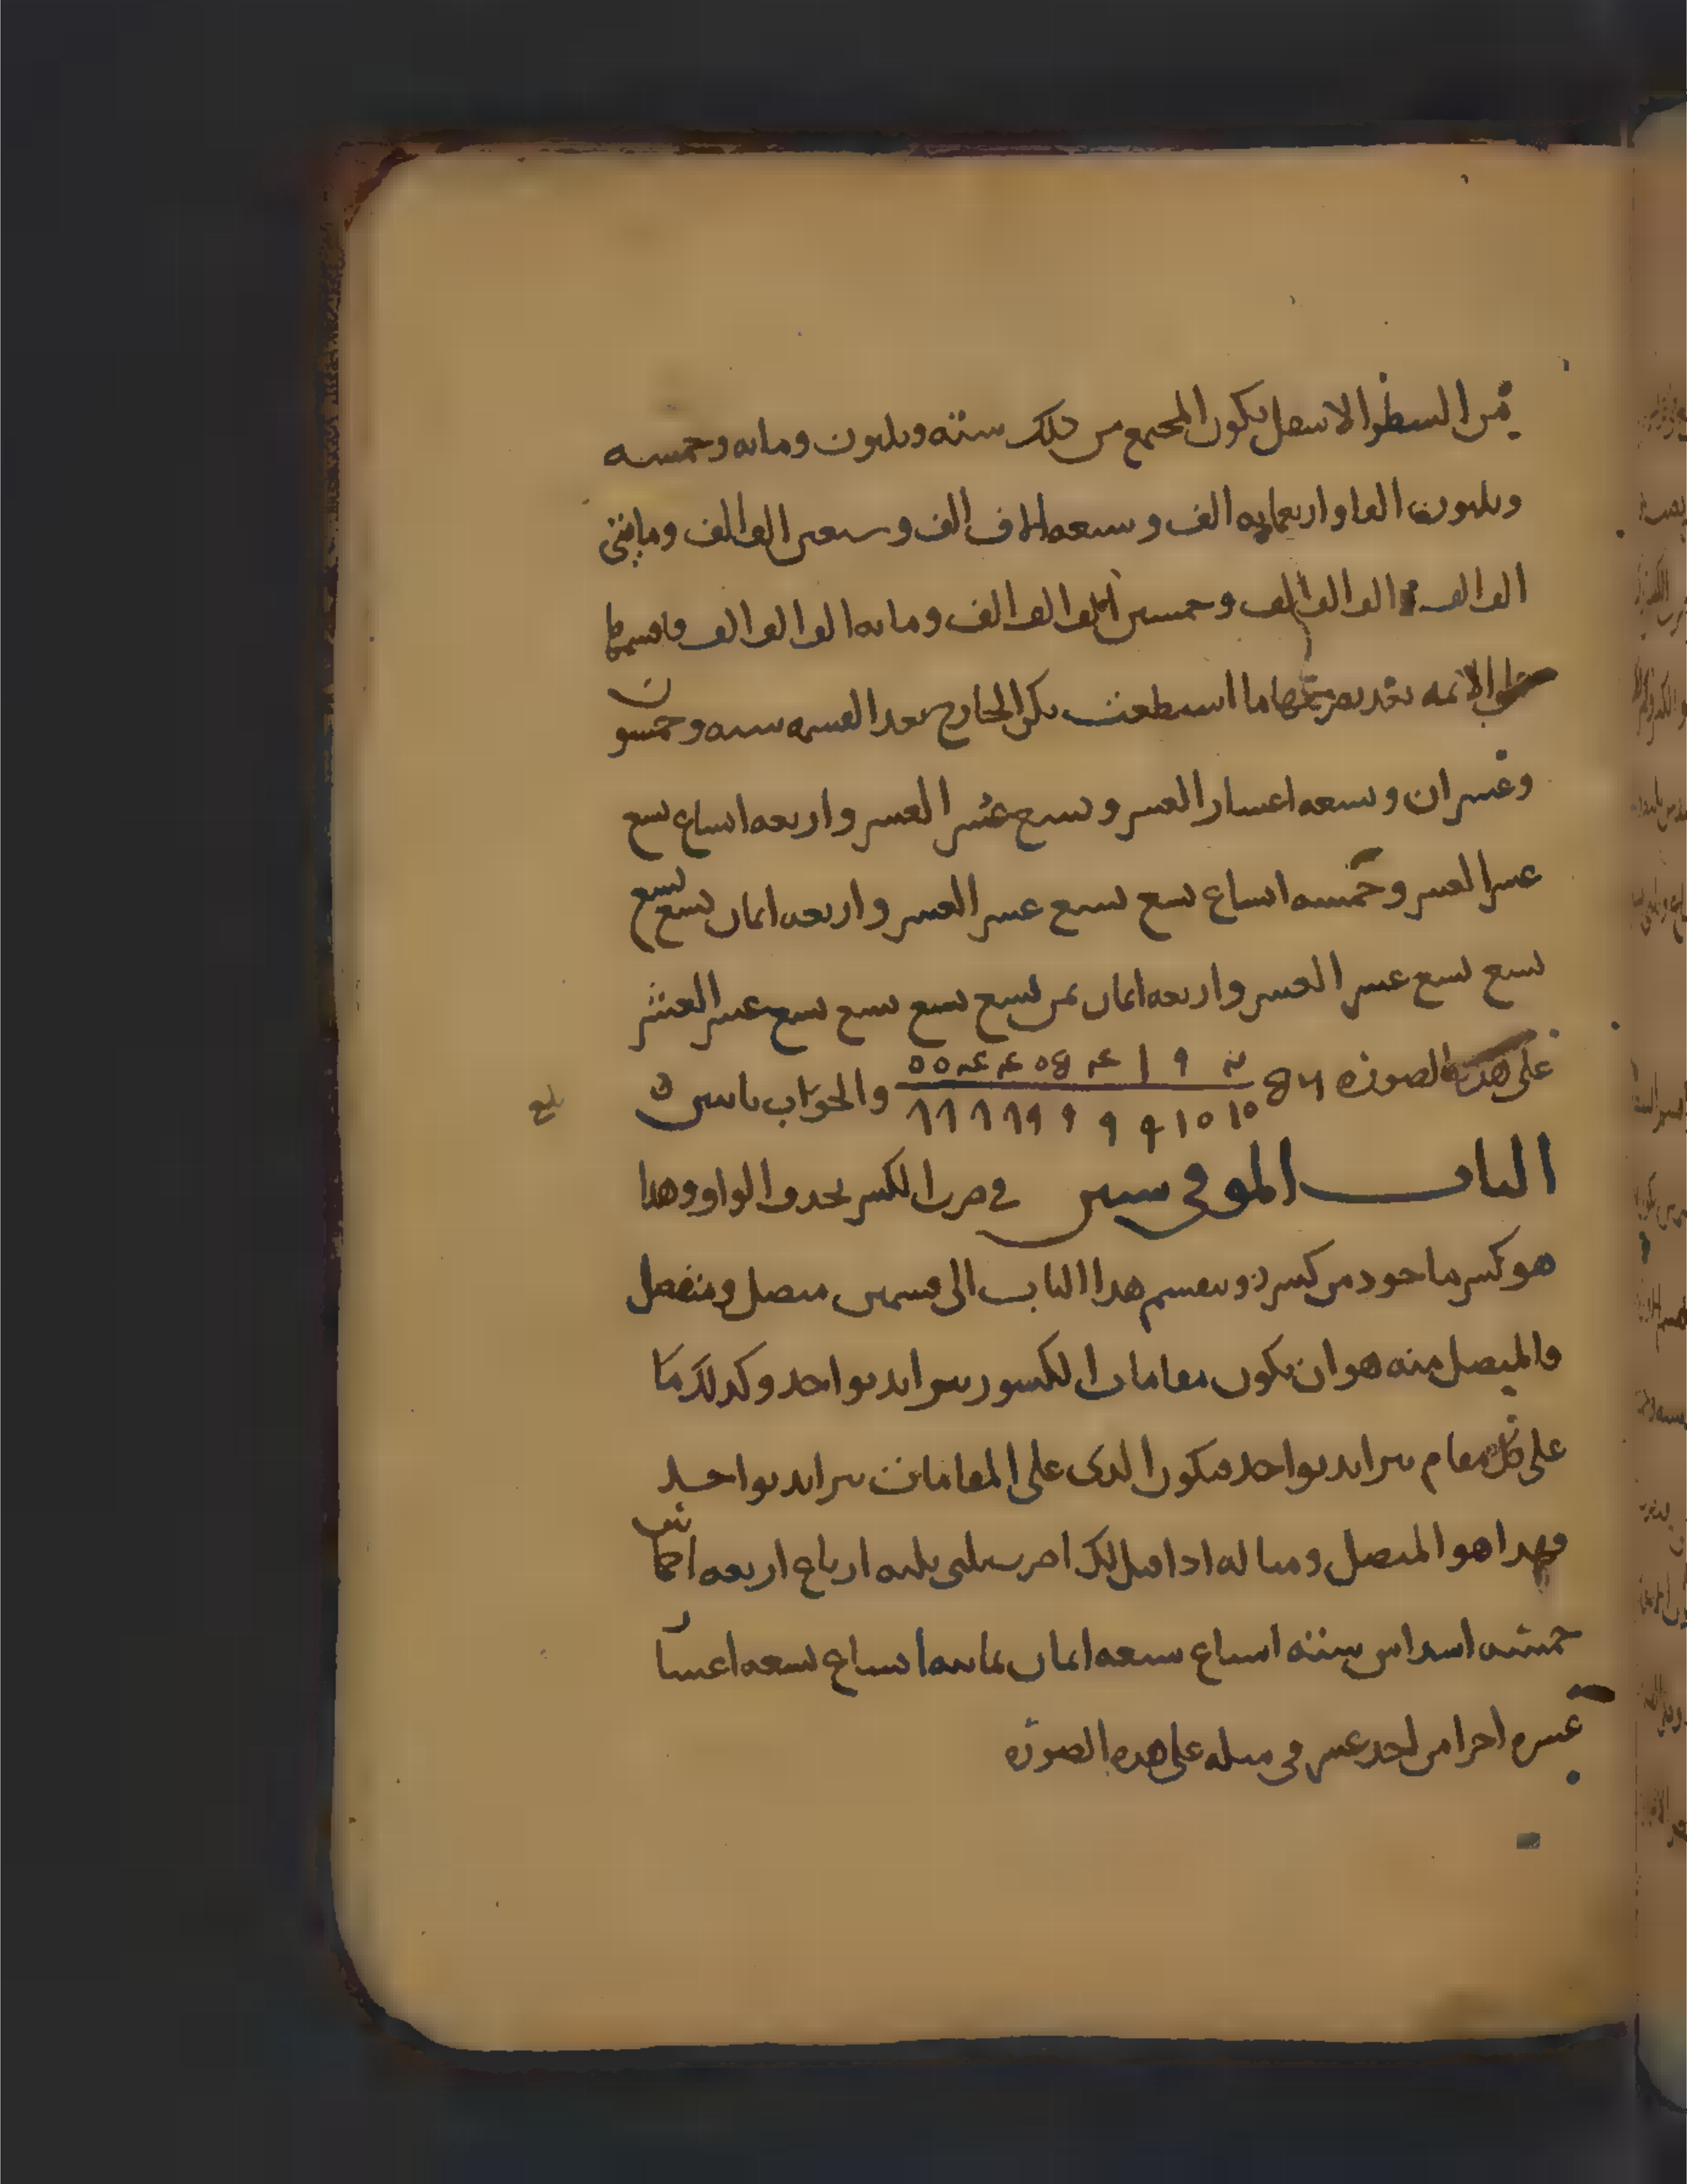 من السطر الاسفل يكون المجتمع من ذلك ستة وثلثون ومايه وخمسه
وثلثون الفا واربعمايه الف وسبعه الاف الف وسبعين الف الف ومايتي
الف الف الف الف وخمسين الف الف الف ومايه الف الف الف فاقسمها
على الايمه بعد ما استطعت يكن الخارج بعد القسمه سته وخمسون
وعشران وتسعه اعشار العشر وتسع عشر العشر واربعه اتساع تسع
عشر العشر وخمسه اتساع تسع تسع عشر العشر واربعه اثمان تسع تسع
تسع تسع عشر العشر واربعه اثمان ثمن تسع تسع تسع تسع عشر العشر
على هذه الصوره والجواب
بلغ
الباب الموفي ستين في ضرب الكسر بحذف الواو وهذا
هو كسر ماخوذ من كسر وينقسم هذا الباب الى قسمين متصل ومنفصل
والمتصل منه هو ان يكون مقامات الكسور يتزايد بواحد وكذلك ما
على كل مقام يتزايد بواحد فيكون الذي على المقامات يتزايد بواحد
فهذا هو المتصل ومثاله اذا قيل لك اضرب ثلثي ثلثه ارباع اربعه اخماس
خمسه اسداس سته اسباع سبعه اثمان ثمانيه اتساع تسعه اعشار
عشره اجزا من احد عشر في مثله على هذه الصوره